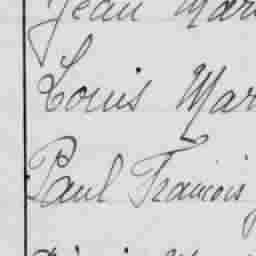 Jean Mar
Louis Mar
Paul Francois